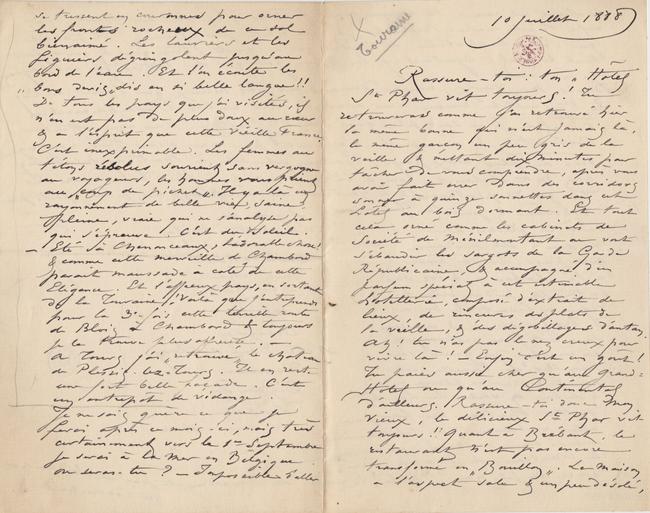 se tressent en couronnes pour orner
les fronts rocheux de ce sol
Les lauriers et les
figuiers dégringolent jusqu'au
bord de l'eau. Et l'on écoute les
"bons devis dis en si belle langue"!!
De tous les pays que j'ai visités, il
n'en est pas de plus doux au cœur
& à l'esprit que cette vieille France.
C'est inexprimable. Les femmes aux
tétons rebelus sourient sans vergogne
au voyageur, les hommes vous
au "coup de pichet". Il y a là un
rayonnement de belle vie, saine
pleine, vraie qui ne s'analyse pas
qui s'éprouve. C'est du soleil.
— Été à Chenonceaux, l'adorable chose!
& comme cette merveille de Chambord
paraît maussade à côté de cette
Élégance. Et l'affreux pays, en sortant
de la Touraine! Voilà que j'entreprends
pour la 3e fois cette route
de Blois à Chambord & toujours
je la trouve plus
A Tours j'ai retrouvé le château
de Plessis-lez-Tours. Il en reste
une fort belle façade. C'est
un entrepôt de vidange.
Je ne sais guère ce que je
ferai après ce mois-ci, mais très
certainement vers le 1er Septembre
je serai à la Mer en Belgique
où seras-tu? — Impossible d'aller
X
Touraine
10 Juillet 1888
Rassure-toi: ton "Hôtel
St Phar vit toujours! Tu
retrouveras comme j'ai retrouvé hier
la même bonne qui n'est jamais là,
le même garçon un peu gris de la
veille & mettant dix minutes pour
tâcher de vous comprendre, après vous
avoir fait errer dans des corridors
sonner à quinze sonnettes dans cet
hôtel au bois dormant. Et tout
cela orné comme les cabinets de
Société de Ménilmontant où vont
s'ébaudir les sergots de la Garde
Républicaine, & accompagné d'un
parfum spécial à cet estimable
hôtellerie, composé d'extrait de
lieux, de rinçures des plats de
la veille, & des dégobillages d'antan.
Ah! tu n'as pas le nez creux pour
vivre là! — Enfin c'est un goût!
Tu paies aussi cher qu'au Grand-
Hôtel ou qu'au Continental
d'ailleurs. Rassure-toi donc mon
vieux, le délicieux St Phar vit
toujours!! Quant à Brébant, le
restaurant n'est pas encore
transformé en "Bouillon". La maison
a l'aspect sale & un peu désolé,